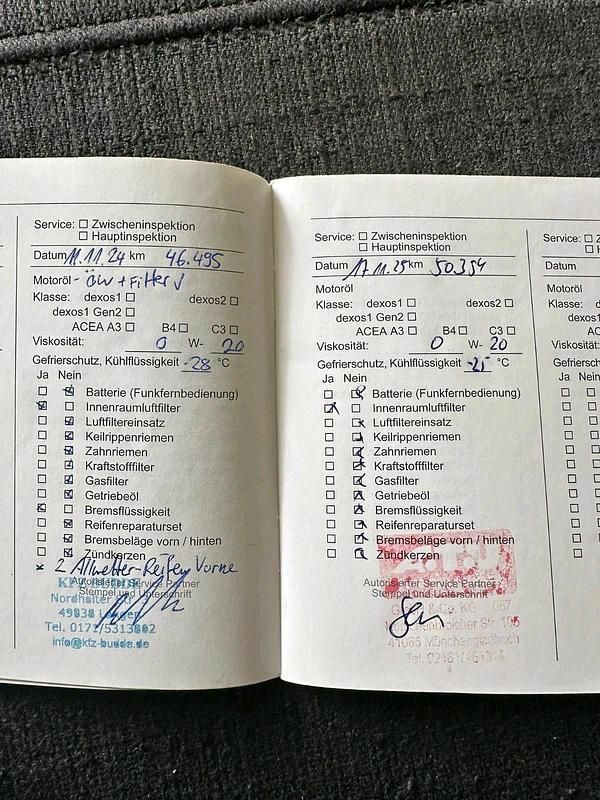 Service: Zwischeninspektion
Hauptinspektion
Datum 11.11.24 km 46.495
Motoröl - Öl + Filter √
Klasse: dexos1 dexos2
dexos1 Gen2
ACEA A3 B4 C3
Viskosität: 0 W- 20
Gefrierschutz, Kühlflüssigkeit -28 °C
Ja Nein
Batterie (Funkfernbedienung)
Innenraumluftfilter
Luftfiltereinsatz
Keilrippenriemen
Zahnriemen
Kraftstofffilter
Gasfilter
Getriebeöl
Bremsflüssigkeit
Reifenreparaturset
Bremsbeläge vorn / hinten
Zündkerzen
x 2 Allwetter-Reifen Vorne
Autorisierter Service Partner
Stempel und Unterschrift
49838
Tel. 0171/5313882
info@kfz-budde.de
Service: Zwischeninspektion
Hauptinspektion
Datum 17.11.25 km 50354
Motoröl
Klasse: dexos1 dexos2
dexos1 Gen2
ACEA A3 B4 C3
Viskosität: 0 W- 20
Gefrierschutz, Kühlflüssigkeit °C
Ja Nein
Batterie (Funkfernbedienung)
Innenraumluftfilter
Luftfiltereinsatz
Keilrippenriemen
Zahnriemen
Kraftstofffilter
Gasfilter
Getriebeöl
Bremsflüssigkeit
Reifenreparaturset
Bremsbeläge vorn / hinten
Zündkerzen
Autorisierter Service Partner
Stempel und Unterschrift
& Co. KG 087
41065 Mönchengladbach
Service:
Datum
Motoröl
Klasse:
Viskosität:
Gefriersch
Ja Nein